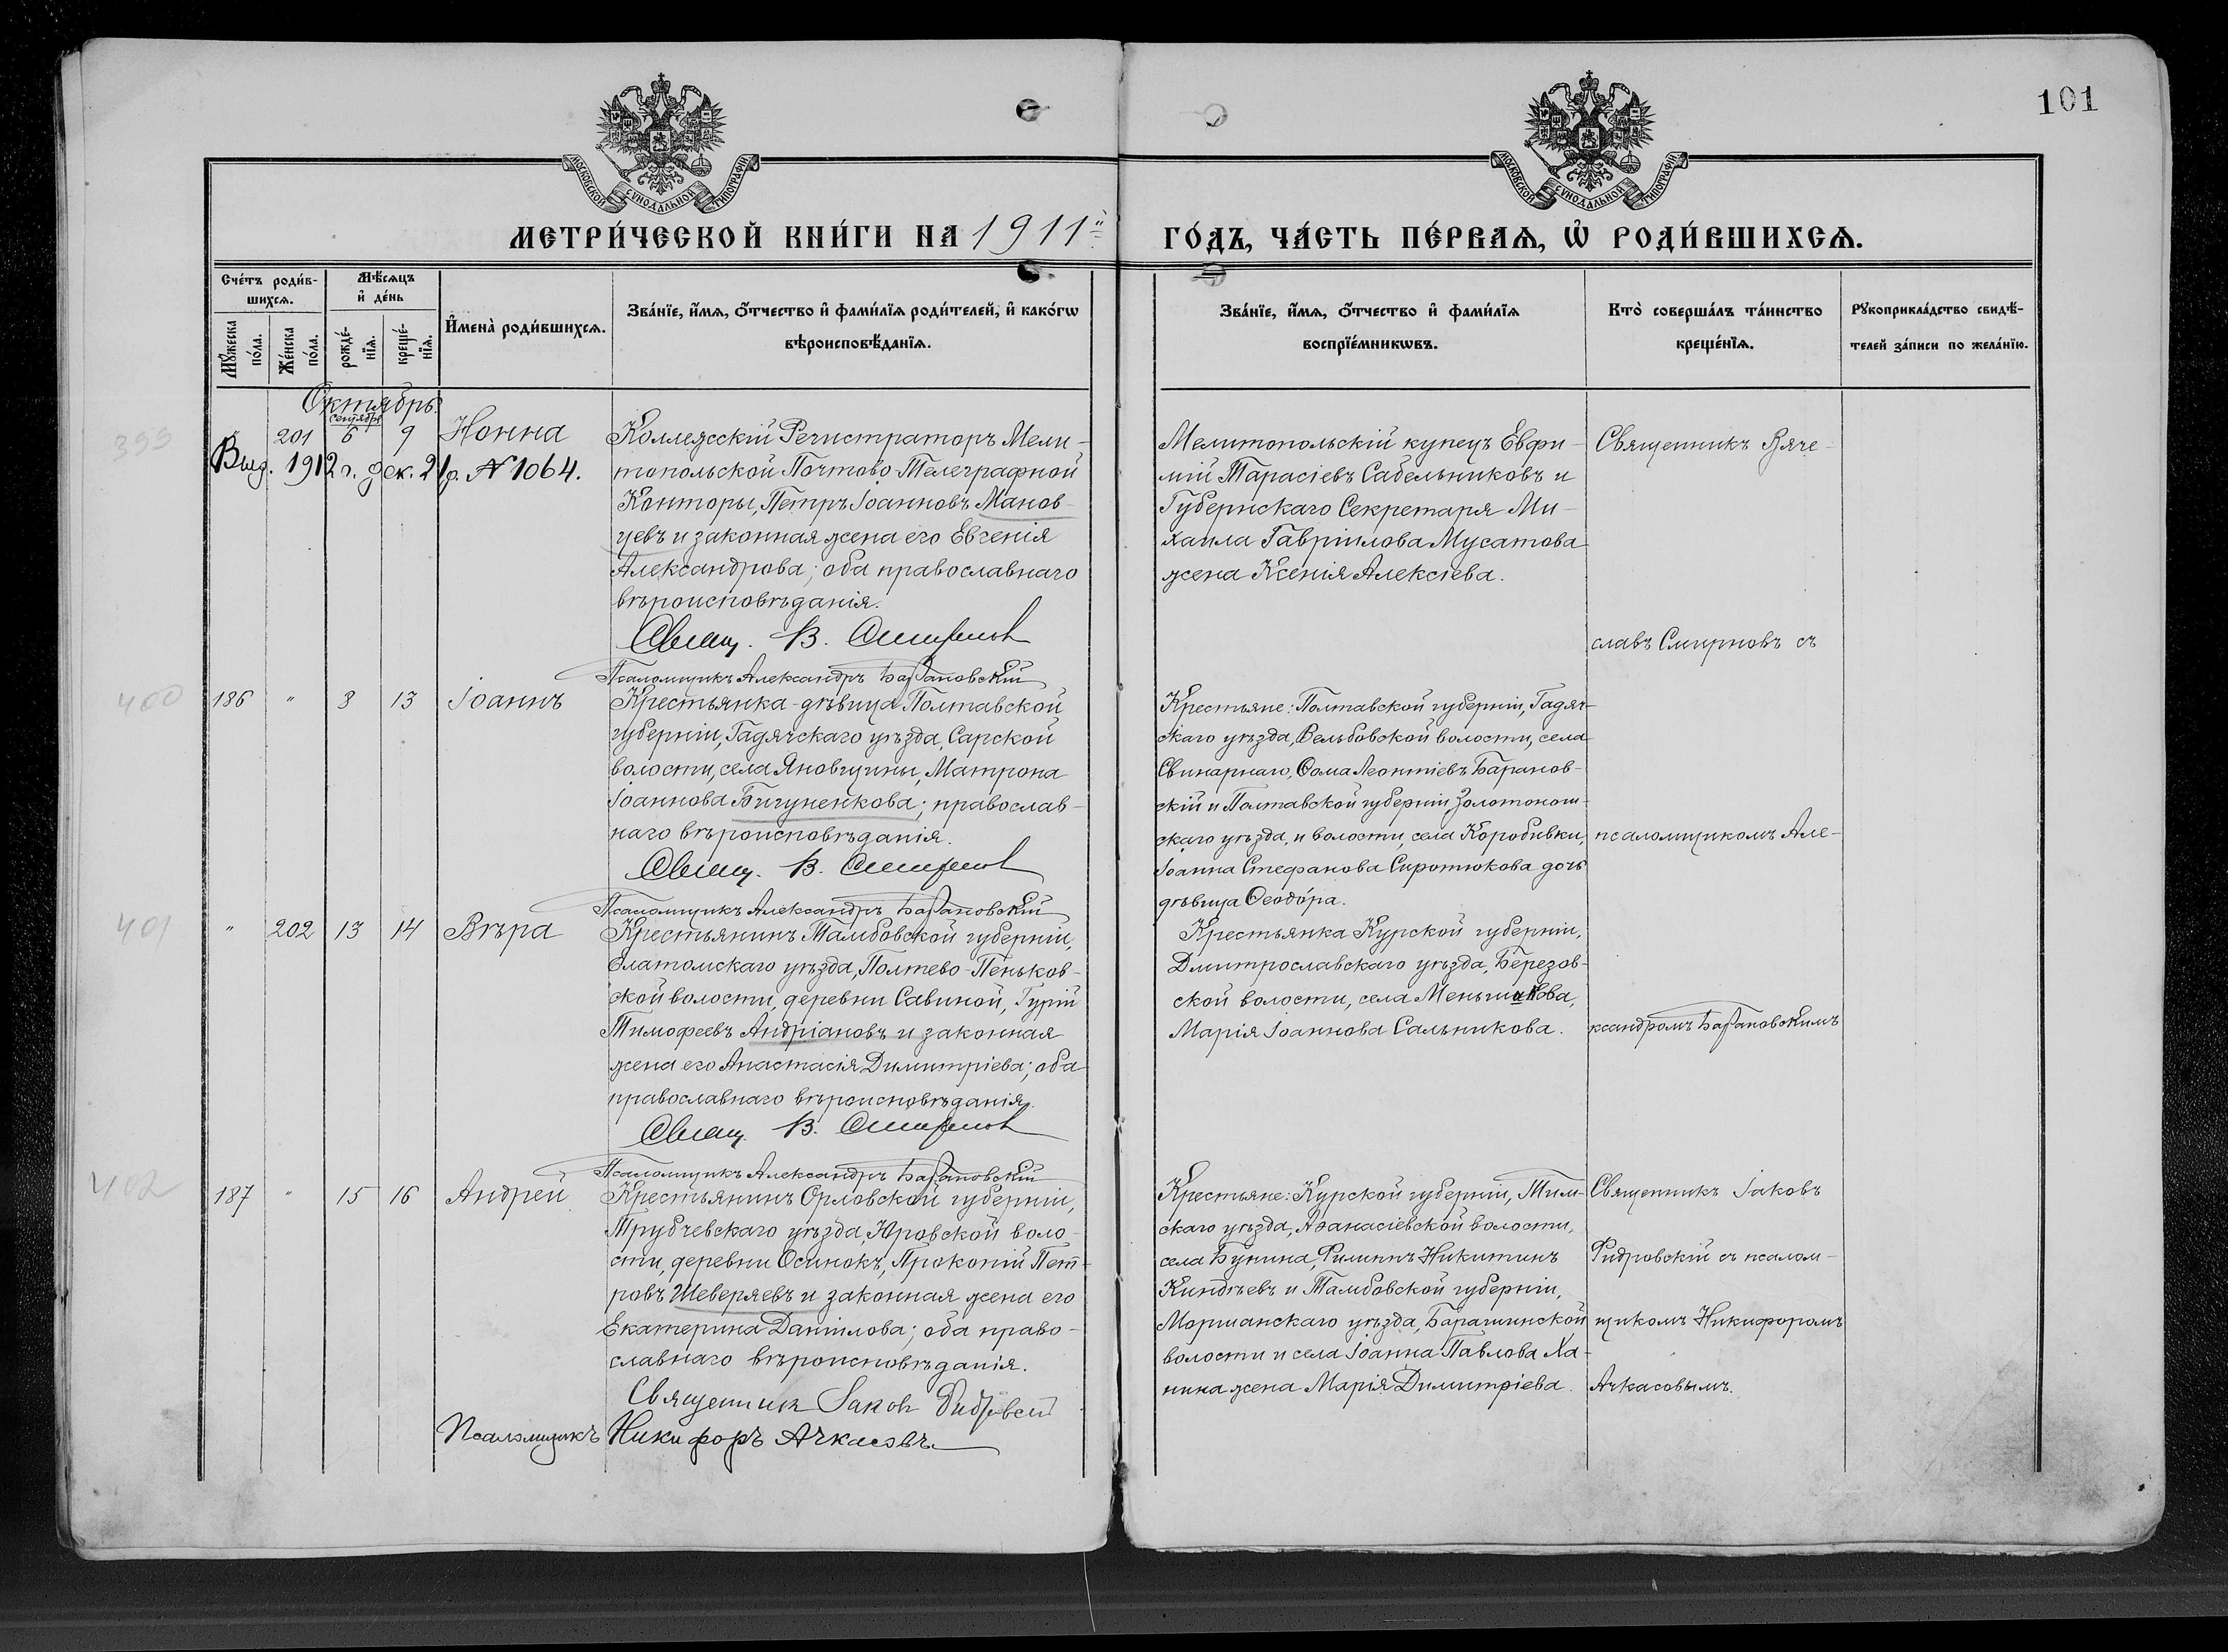 101
МОСКОВСКОЙ СѴНОДАЛЬНОЙ ТИПОГРАФІИ
МОСКОВСКОЙ СѴНОДАЛЬНОЙ ТИПОГРАФІИ
МЕТРИ́ЧЕСКОЙ КНИ́ГИ НА 1911й ГО́ДЪ, ЧА́СТЬ ПЕ́РВАѦ, Ѡ҆ РОДИ́ВШИХСѦ.
Сче́тъ роди́в-
шихсѧ.
Мꙋ́жеска по́ла.
Же́нска по́ла.
Мѣ́сѧцъ
и҆ де́нь
рожде́-
нїѧ.
креще́-
нїѧ.
И҆мена̀ роди́вшихсѧ.
Зва́нїе, и҆́мѧ, ѻ҆́тчество и҆ фами́лїѧ роди́телей, и҆ како́гѡ
вѣроисповѣ́данїѧ.
Зва́нїе, и҆́мѧ, ѻ҆́тчество и҆ фами́лїѧ
воспрїе́мникѡвъ.
Кто̀ соверша́лъ та́инство
креще́нїѧ.
Рꙋкоприкла́дство свидѣ́-
телей за́писи по жела́нїю.
Октябрь.
сентября
399
" 201 6 9 Нонна
Выд. 1912 г. дек. 21 д. № 1064.
Коллежскій Регистраторъ Мели-
топольской Почтово-Телеграфной
Конторы, Петръ Іоанновъ Манов-
цевъ и законная жена его Евгенія
Александрова; оба православнаго
вѣроисповѣданія.
Свящ. В. Смирнов
Псаломщикъ Александръ Барановскій
Мелитопольскій купецъ Евфи-
мій Тарасіевъ Сабельниковъ и
Губернскаго Секретаря Ми-
хаила Гавріилова Мусатова
жена Ксенія Алексіева.
Священникъ Вяче-
славъ Смирновъ съ
400
186 " 8 13 Іоаннъ
Крестьянка-дѣвица Полтавской
губерніи, Гадячскаго уѣзда, Сарской
волости, села Яновщины, Матрона
Іоаннова Бигуненкова; православ-
наго вѣроисповѣданія.
Свящ. В. Смирнов
Псаломщикъ Александръ Барановскій
Крестьяне: Полтавской губерніи, Гадяч-
скаго уѣзда, Вельбовской волости, села
Свинарнаго, Ѳома Леонтіевъ Баранов-
скій и Полтавской губерніи Золотонош-
скаго уѣзда, и волости, села Коробивки,
Іоанна Стефанова Сиротюкова дочь
дѣвица Ѳеодора.
псаломщикомъ Але-
401
" 202 13 14 Вѣра
Крестьянинъ Тамбовской губерніи,
Елатомскаго уѣзда, Полтево-Пеньков-
ской волости, деревни Савиной, Гурій
Тимофеевъ Андріановъ и законная
жена его Анастасія Димитріева; оба
православнаго вѣроисповѣданія.
Свящ. В. Смирнов
Псаломщикъ Александръ Барановскій
Крестьянка Курской губерніи,
Дмитрославскаго уѣзда, Березов-
ской волости, села Меньшикова,
Марія Іоаннова Сальникова.
ксандромъ Барановскимъ
402
187 " 15 16 Андрей
Крестьянинъ Орловской губерніи,
Трубчевскаго уѣзда, Юровской воло-
сти, деревни Осинокъ, Прокопій Пет-
ровъ Шеверяевъ и законная жена его
Екатерина Даніилова; оба право-
славнаго вѣроисповѣданія.
Священник Іаков Фидровскій
Псаломщикъ Никифоръ Ачкасовъ
Крестьяне: Курской губерніи, Тим-
скаго уѣзда, Аѳанасіевской волости,
села Бунина, Филиппъ Никитинъ
Киндѣевъ и Тамбовской губерніи,
Моршанскаго уѣзда, Барашинской
волости и села Іоанна Павлова Ха-
нина жена Марія Димитріева.
Священникъ Іаковъ
Фидровскій съ псалом-
щикомъ Никифоромъ
Ачкасовымъ.